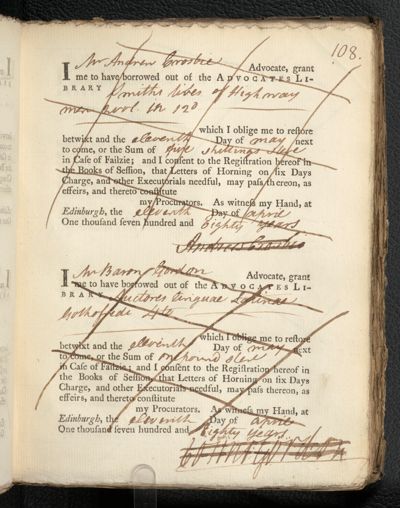 108.
I Mr Andrew Crosbie Advocate, grant
me to have borrowed out of the ADVOCATES LI-
BRARY Smiths libes of Highway
men 2vol in 120
which I oblige me to restore
betwixt and the eleventh Day of may next
to come, or the Sum of five shillings sterl
in Case of Failzie; and I consent to the Registration hereof in
the Books of Session, that Letters of Horning on six Days
Charge, and other Executorials needful, may pass thereon, as
effeirs, and thereto constitute
my Procurators. As witness my Hand, at
Edinburgh, the eleventh Day of april
One thousand seven hundred and Eighty years.
Andrew Crosbie
I Mr Baron Gordon Advocate, grant
me to have borrowed out of the ADVOCATES LI-
BRARY Auctores Linguae Latinae
Gothofredi 4to
which I oblige me to restore
betwixt and the eleventh Day of may next
to come, or the Sum of one pound sterl
in Case of Failzie; and I consent to the Registration hereof in
the Books of Session, that Letters of Horning on six Days
Charge, and other Executorials needful, may pass thereon, as
effeirs, and thereto constitute
my Procurators. As witness my Hand, at
Edinburgh, the eleventh Day of april
One thousand seven hundred and Eighty years.